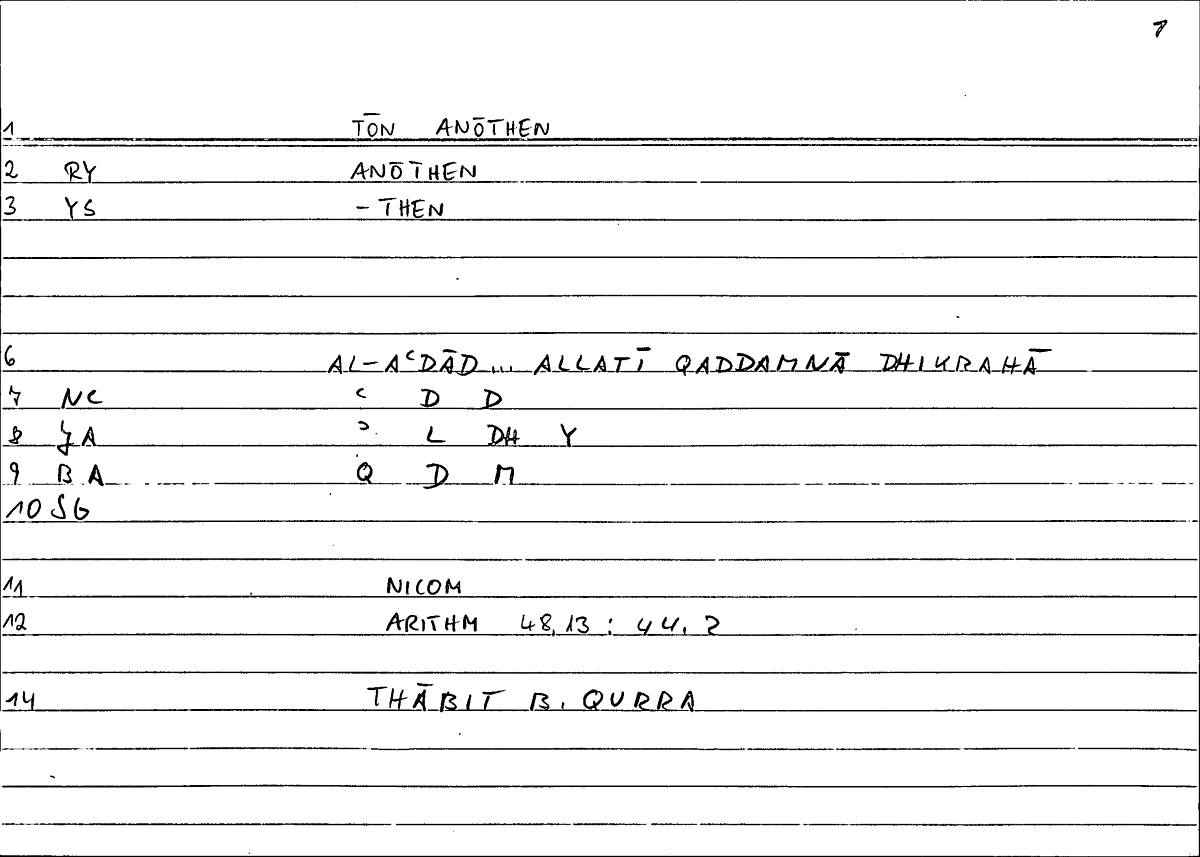 7
1 TŌN ANŌTHEN
2 RY ANŌTHEN
3 YS - THEN
6 AL-AʿDĀD... ALLATĪ QADDAMNĀ DHIKRAHĀ
7 NC ʿ D D
8 JA ʾ L DH Y
9 BA Q D M
10 SG
11 NICOM
12 ARITHM 48,13 : 44.2
14 THĀBIT B. QURRA